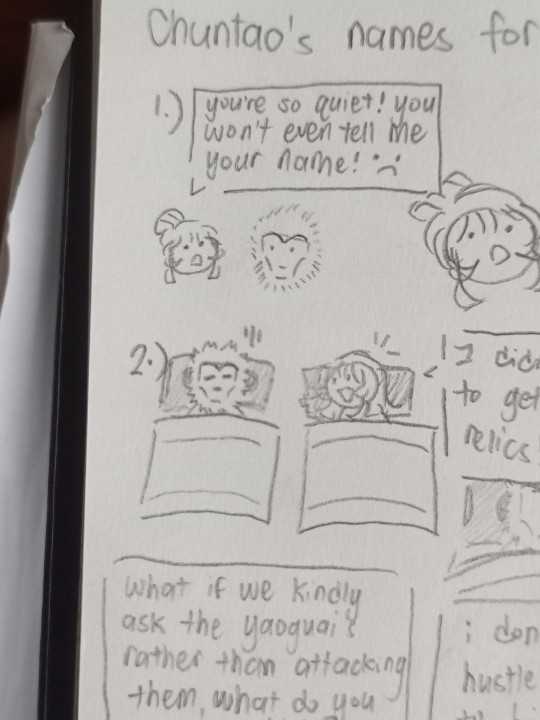 Chuntao's names for
1.)
you're so quiet! you
won't even tell me
your name! :(
2.)
I didn
to get
relics
what if we kindly
ask the yaoguai?
rather than attacking
them, what do you
i don
hustle